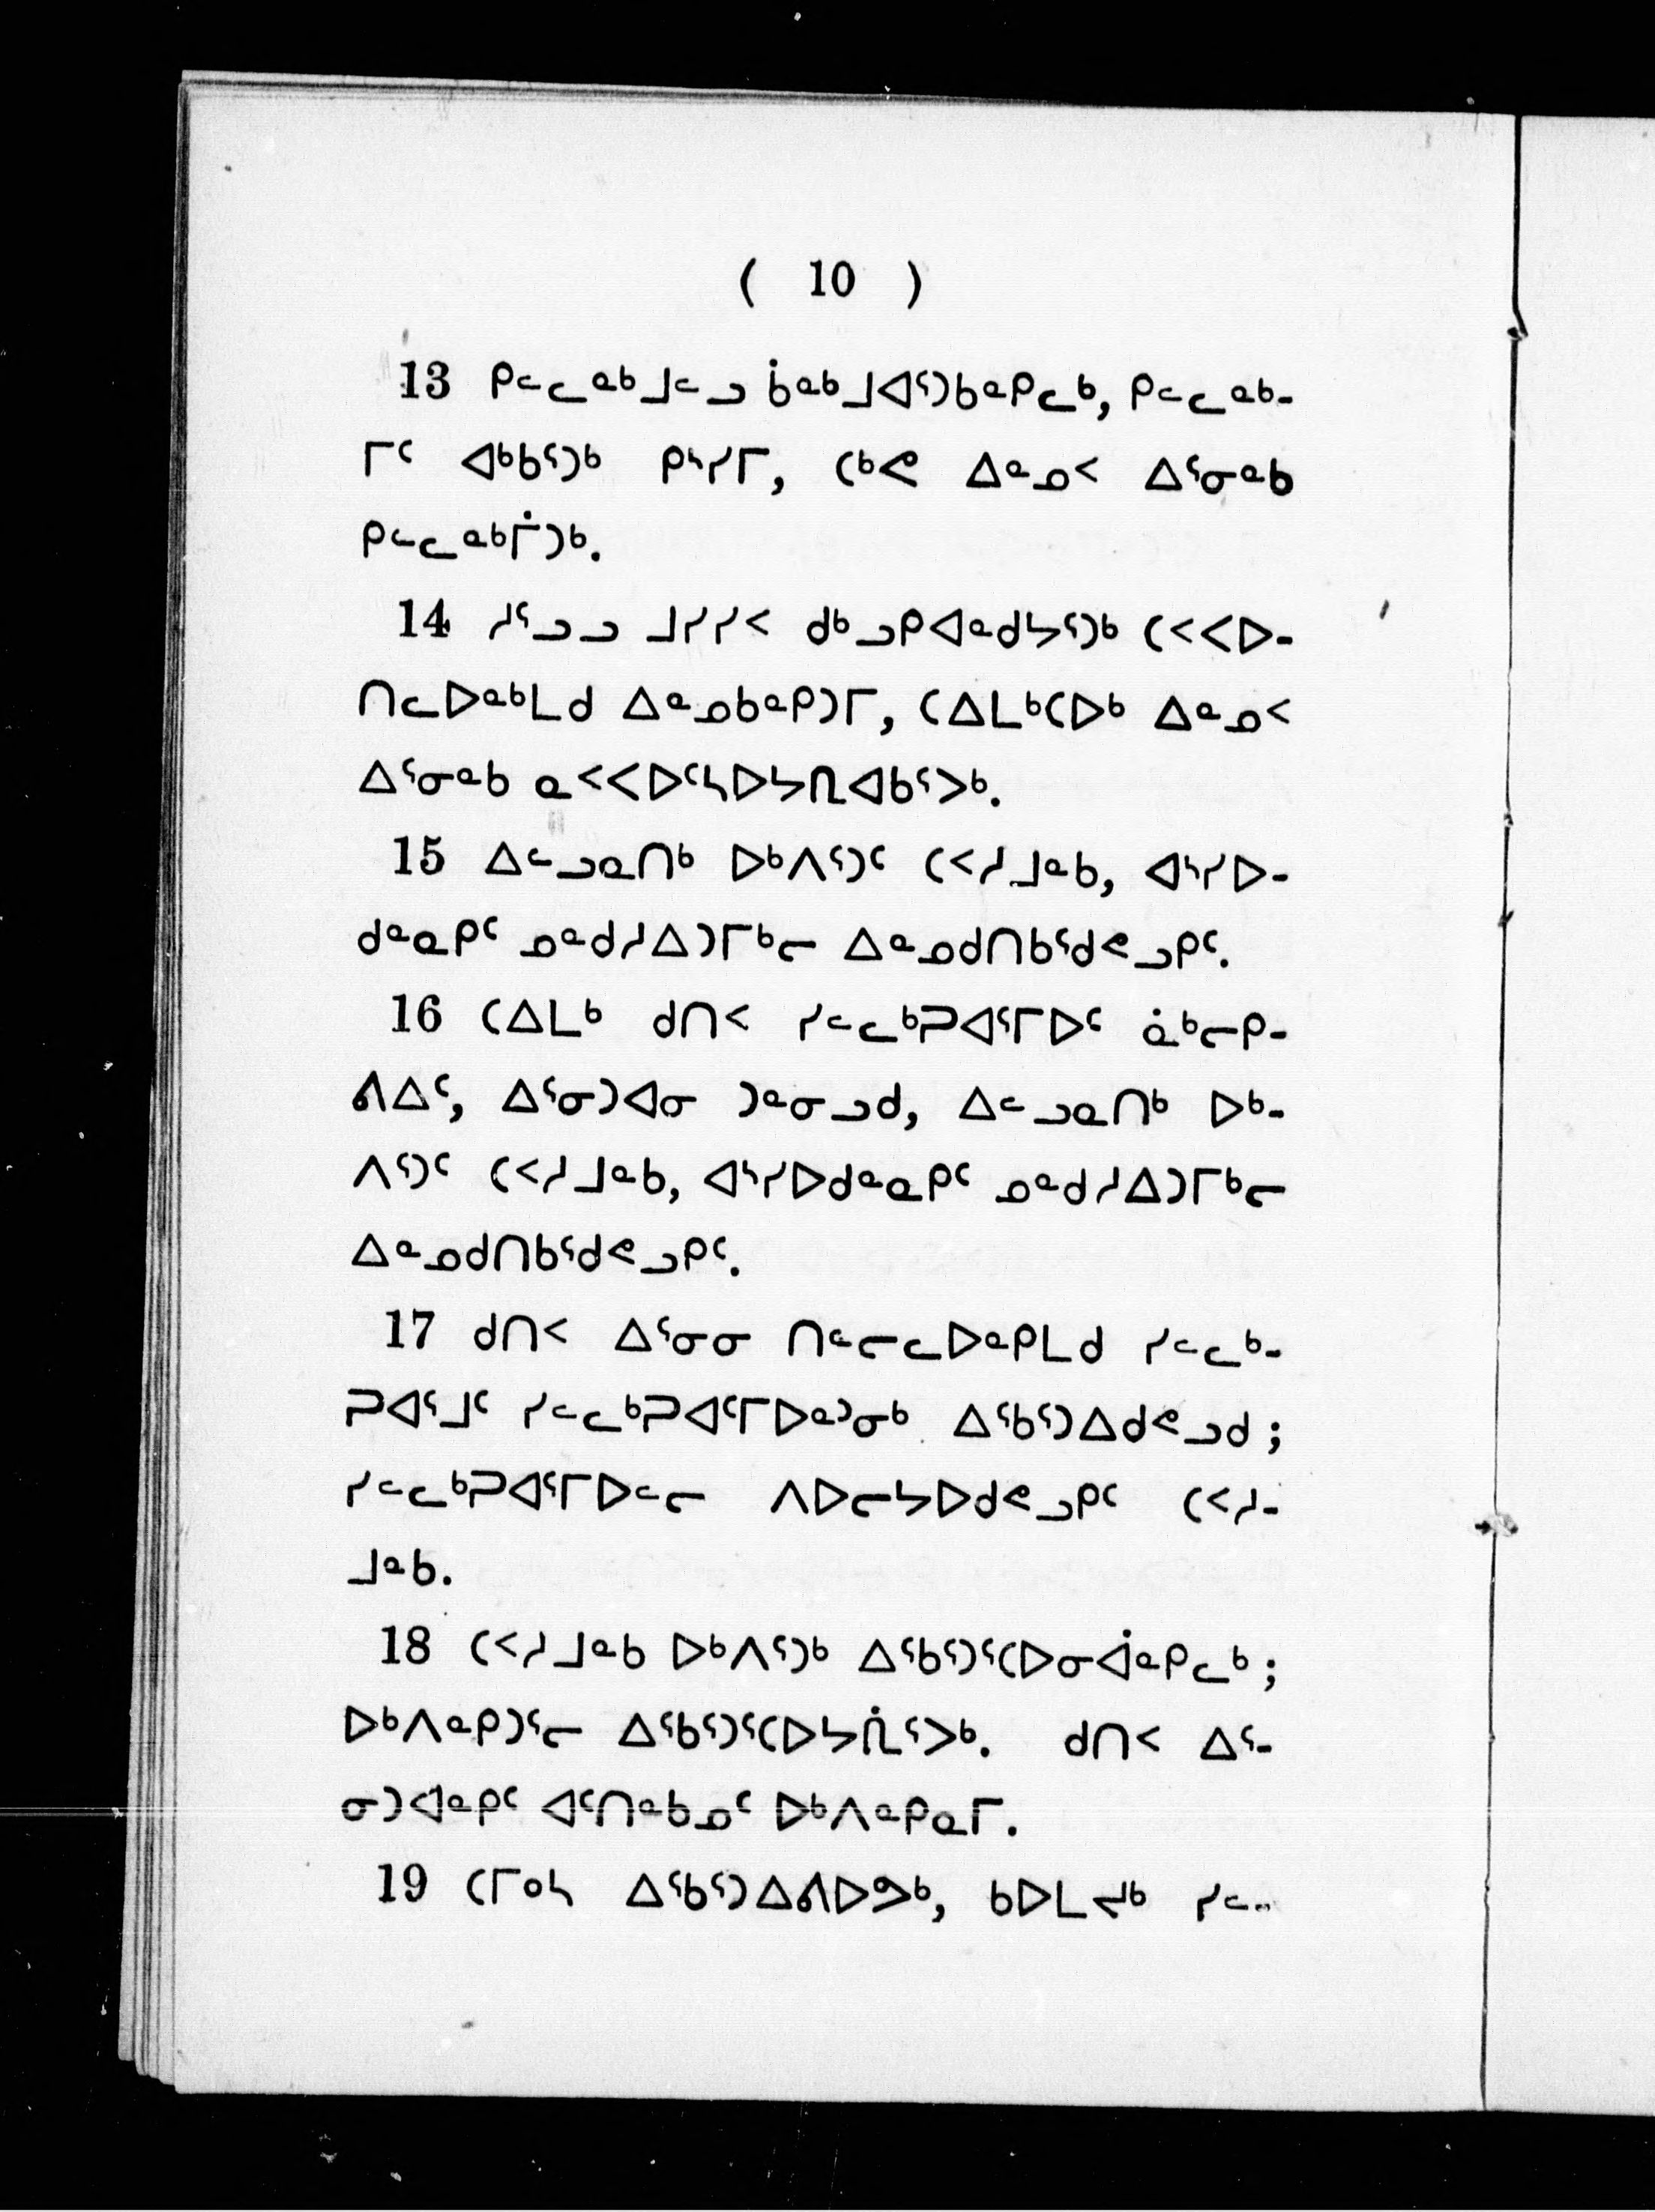 ( 10 )
13 ᑭᓪᓚᓇᒃᒧᓪᓗ ᑳᓇᒃᒧᐊᕐᑐᑲᓐᑭᓚᒃ, ᑭᓪᓚᓇᒃ-
ᒥᑦ ᐊᒃᑲᕐᑐᒃ ᑭᔅᓯᒥ, ᑕᒃᕙ ᐃᓐᓄᑉ ᐃᕐᓂᓐᑲ
ᑭᓪᓚᓇᒃᒦᑐᒃ.
14 ᓱᕐᓗᓗ ᒧᓯᓯᑉ ᑯᒃᓗᑭᐊᓐᑯᔭᕐᑐᒃ ᑕᑉᐸᐅ-
ᑎᓚᐅᓐᒃᒪᑯ ᐃᓐᓄᑲᓐᑭᑐᒥ, ᑕᐃᒪᒃᑕᐅᒃ ᐃᓐᓄᑉ
ᐃᕐᓂᓐᑲ ᓇᑉᐸᐅᑦᓴᐅᔭᕆᐊᑲᕐᐳᒃ.
15 ᐃᓪᓗᓇᑎᒃ ᐅᒃᐱᕐᑐᑦ ᑕᑉᓱᒧᓐᑲ, ᐊᔅᓯᐅ-
ᑯᓐᓇᑭᑦ ᓄᓐᑯᓱᐃᑐᒥᒃᓕ ᐃᓐᓄᑯᑎᑲᕐᑯᕙᓗᑭᑦ.
16 ᑕᐃᒪᒃ ᑯᑎᑉ ᓯᓪᓚᒃᑐᐊᕐᒥᐅᑦ ᓈᒃᓕᑭ-
ᕕᐃᑦ, ᐃᕐᓂᑐᐊᓂ ᑐᓐᓂᓗᑯ, ᐃᓪᓗᓇᑎᒃ ᐅᒃ-
ᐱᕐᑐᑦ ᑕᑉᓱᒧᓐᑲ, ᐊᔅᓯᐅᑯᓐᓇᑭᑦ ᓄᓐᑯᓱᐃᑐᒥᒃᓕ
ᐃᓐᓄᑯᑎᑲᕐᑯᕙᓗᑭᑦ.
17 ᑯᑎᑉ ᐃᕐᓂᓂ ᑎᓪᓕᓚᐅᓐᑭᒪᑯ ᓯᓪᓚᒃ-
ᑐᐊᕐᒧᑦ ᓯᓪᓚᒃᑐᐊᕐᒥᐅᓐᓂᒃ ᐃᕐᑲᕐᑐᐃᑯᕙᓗᑯ;
ᓯᓪᓚᒃᑐᐊᕐᒥᐅᓪᓕ ᐱᐅᓕᔭᐅᑯᕙᓗᑭᑦ ᑕᑉᓱ-
ᒧᓐᑲ.
18 ᑕᑉᓱᒧᓐᑲ ᐅᒃᐱᕐᑐᒃ ᐃᕐᑲᕐᑐᕐᑕᐅᓂᐋᓐᑭᓚᒃ;
ᐅᒃᐱᓐᑭᑐᕐᓕ ᐃᕐᑲᕐᑐᕐᑕᐅᔭᕇᕐᐳᒃ. ᑯᑎᑉ ᐃᕐ-
ᓂᑐᐊᓐᑭᑦ ᐊᑦᑎᓐᑲᓄᑦ ᐅᒃᐱᓐᑭᓇᒥ.
19 ᑕᒥᓐᓴ ᐃᕐᑲᕐᑐᐃᕕᐅᕗᒃ, ᑲᐅᒪᔪᒃ ᓯᓪ-